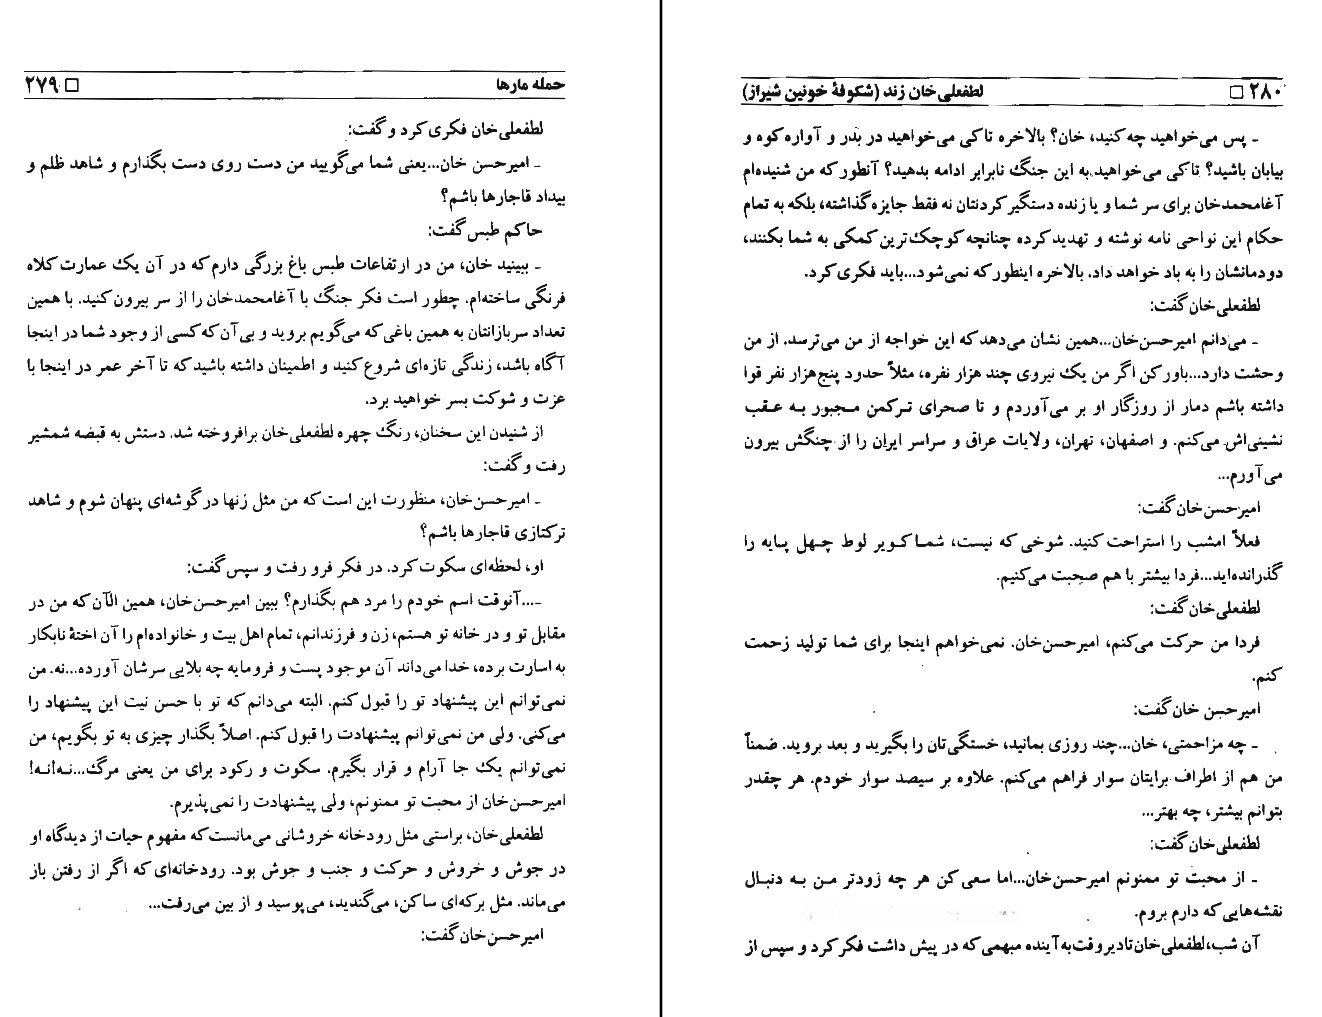 حمله مارها □ ۲۷۹
لطفعلی‌خان فکری کرد و گفت:
ـ امیرحسن خان...یعنی شما می‌گویید من دست روی دست بگذارم و شاهد ظلم و
بیداد قاجارها باشم؟
حاکم طبس گفت:
ـ ببینید خان، من در ارتفاعات طبس باغ بزرگی دارم که در آن یک عمارت کلاه
فرنگی ساخته‌ام. چطور است فکر جنگ با آغامحمدخان را از سر بیرون کنید. با همین
تعداد سربازانتان به همین باغی که می‌گویم بروید و بی‌آن که کسی از وجود شما در اینجا
آگاه باشد، زندگی تازه‌ای شروع کنید و اطمینان داشته باشید که تا آخر عمر در اینجا با
عزت و شوکت بسر خواهید برد.
از شنیدن این سخنان، رنگ چهره لطفعلی‌خان برافروخته شد. دستش به قبضه شمشیر
رفت و گفت:
ـ امیرحسن‌خان، منظورت این است که من مثل زنها در گوشه‌ای پنهان شوم و شاهد
ترکتازی قاجارها باشم؟
او، لحظه‌ای سکوت کرد. در فکر فرو رفت و سپس گفت:
ـ...آنوقت اسم خودم را مرد هم بگذارم؟ ببین امیرحسن‌خان، همین الآن که من در
مقابل تو و در خانه تو هستم، زن و فرزندانم، تمام اهل بیت و خانواده‌ام را آن اختهٔ نابکار
به اسارت برده، خدا می‌داند آن موجود پست و فرومایه چه بلایی سرشان آورده...نه. من
نمی‌توانم این پیشنهاد تو را قبول کنم. البته می‌دانم که تو با حسن نیت این پیشنهاد را
می‌کنی. ولی من نمی‌توانم پیشنهادت را قبول کنم. اصلاً بگذار چیزی به تو بگویم، من
نمی‌توانم یک جا آرام و قرار بگیرم. سکوت و رکود برای من یعنی مرگ...نه!نه!
امیرحسن‌خان از محبت تو ممنونم، ولی پیشنهادت را نمی‌پذیرم.
لطفعلی‌خان، براستی مثل رودخانه خروشانی می‌مانست که مفهوم حیات از دیدگاه او
در جوش و خروش و حرکت و جنب و جوش بود. رودخانه‌ای که اگر از رفتن باز
می‌ماند. مثل برکه‌ای ساکن، می‌گندید، می‌پوسید و از بین می‌رفت...
امیرحسن‌خان گفت:
۲۸۰ □ لطفعلی‌خان زند (شکوفهٔ خونین شیراز)
ـ پس می‌خواهید چه کنید، خان؟ بالاخره تا کی می‌خواهید در بدر و آواره کوه و
بیابان باشید؟ تا کی می‌خواهید به این جنگ نابرابر ادامه بدهید؟ آنطور که من شنیده‌ام
آغامحمدخان برای سر شما و یا زنده دستگیر کردنتان نه فقط جایزه گذاشته، بلکه به تمام
حکام این نواحی نامه نوشته و تهدید کرده چنانچه کوچک‌ترین کمکی به شما بکنند،
دودمانشان را به باد خواهد داد. بالاخره اینطور که نمی‌شود...باید فکری کرد.
لطفعلی‌خان گفت:
ـ می‌دانم امیرحسن‌خان...همین نشان می‌دهد که این خواجه از من می‌ترسد. از من
وحشت دارد...باور کن اگر من یک نیروی چند هزار نفره، مثلاً حدود پنج‌هزار نفر قوا
داشته باشم دمار از روزگار او بر می‌آوردم و تا صحرای ترکمن مجبور به عقب
نشینی‌اش می‌کنم. و اصفهان، تهران، ولایات عراق و سراسر ایران را از چنگش بیرون
می‌آورم...
امیرحسن‌خان گفت:
فعلاً امشب را استراحت کنید. شوخی که نیست، شما کویر لوط چهل پایه را
گذرانده‌اید...فردا بیشتر با هم صحبت می‌کنیم.
لطفعلی‌خان گفت:
فردا من حرکت می‌کنم، امیرحسن‌خان. نمی‌خواهم اینجا برای شما تولید زحمت
کنم.
امیرحسن خان گفت:
ـ چه مزاحمتی، خان...چند روزی بمانید، خستگی‌تان را بگیرید و بعد بروید. ضمناً
من هم از اطراف برایتان سوار فراهم می‌کنم. علاوه بر سیصد سوار خودم. هر چقدر
بتوانم بیشتر، چه بهتر...
لطفعلی‌خان گفت:
ـ از محبت تو ممنونم امیرحسن‌خان...اما سعی کن هر چه زودتر من به دنبال
نقشه‌هایی که دارم بروم.
آن شب، لطفعلی‌خان تا دیروقت به آینده مبهمی که در پیش داشت فکر کرد و سپس از